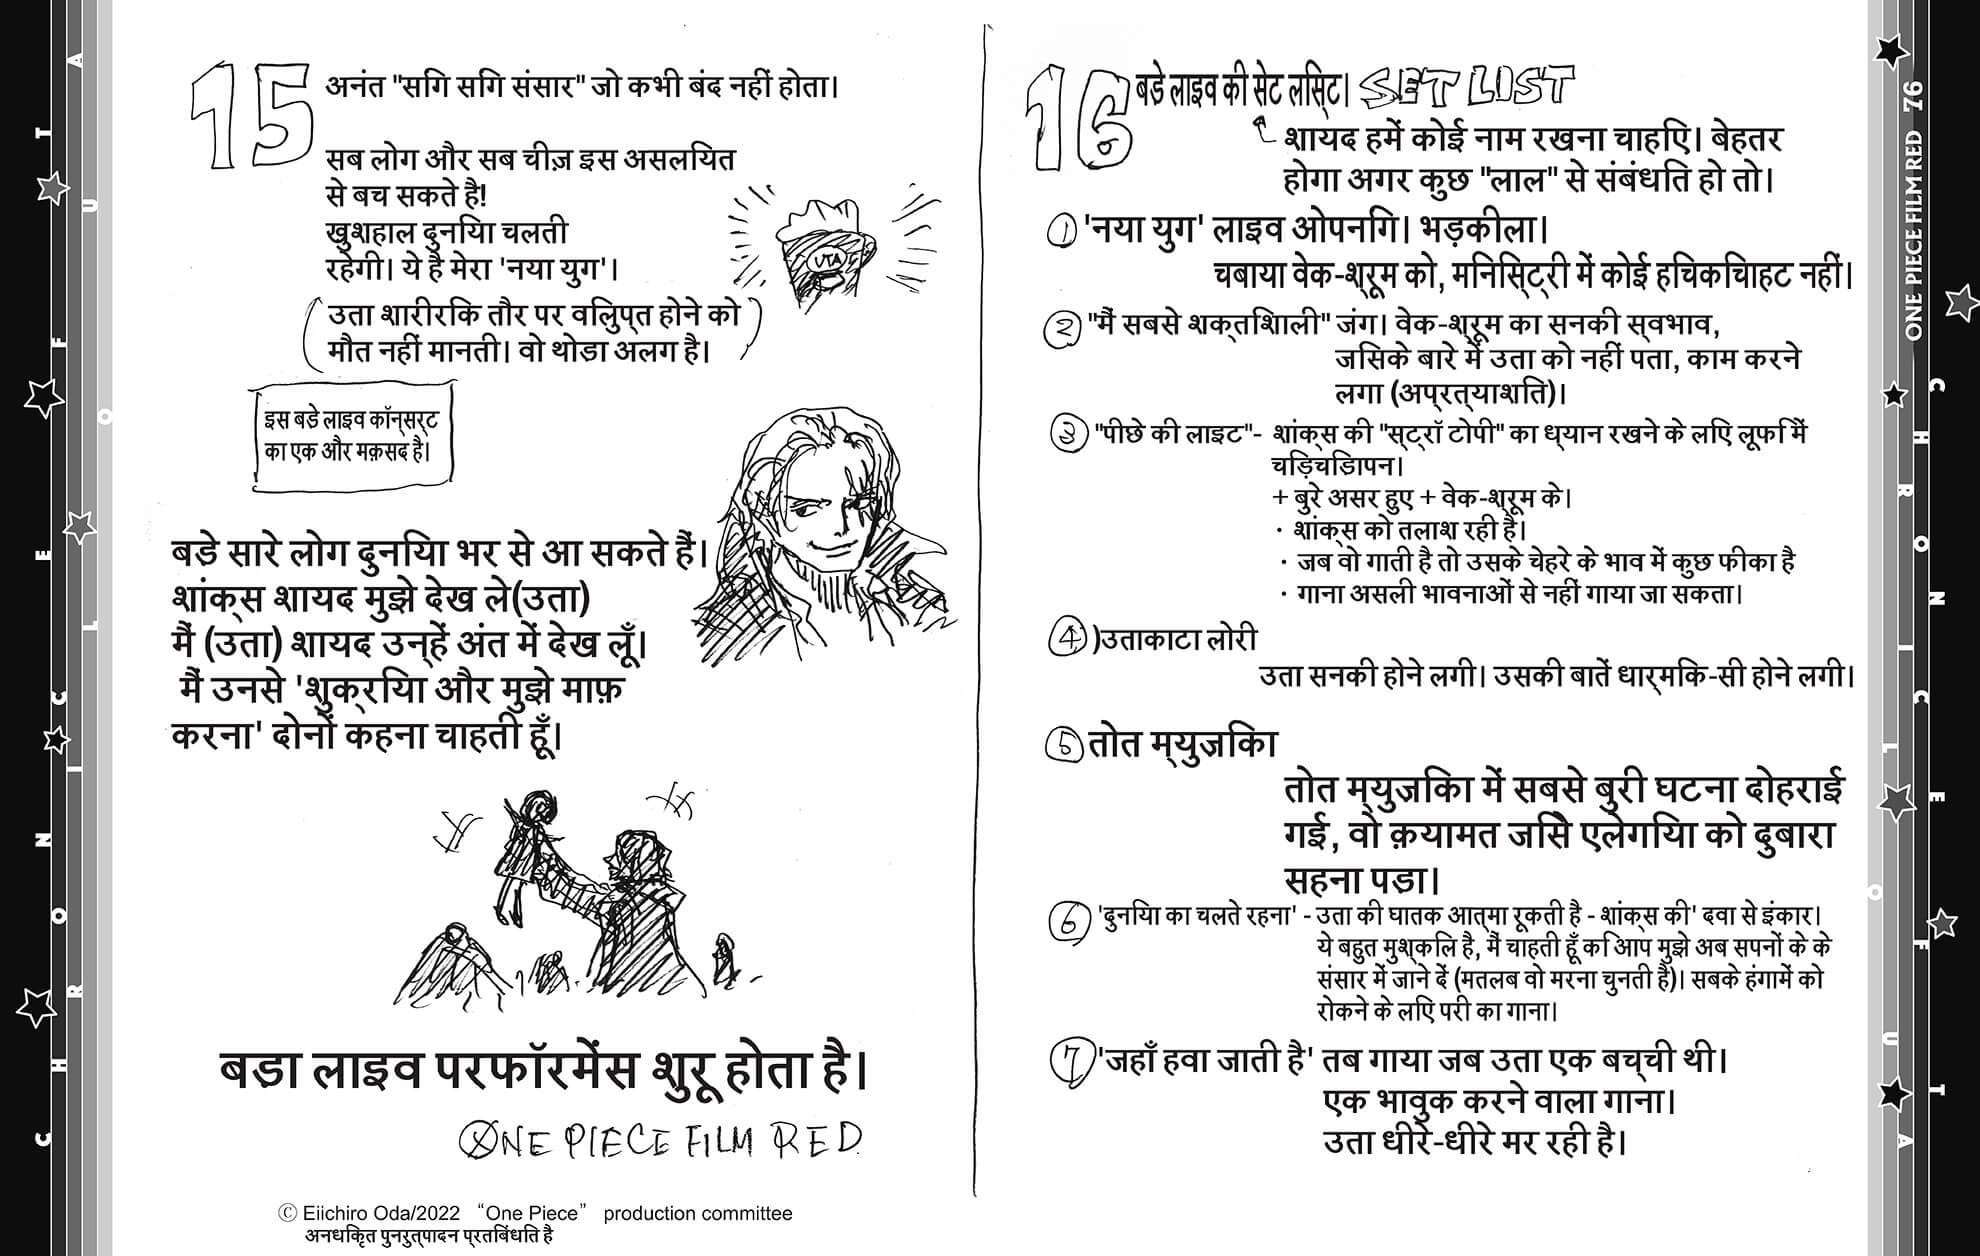 15
अनंत "सगि सगि संसार" जो कभी बंद नहीं होता।
सब लोग और सब चीज़ इस असलयित
से बच सकते है!
खुशहाल दुनयिा चलती
रहेगी। ये है मेरा 'नया युग'।
UTA
(उता शारीरकि तौर पर वलिुप्त होने को
मौत नहीं मानती। वो थोडा अलग है।)
इस बडे लाइव कॉन्सर्ट
का एक और मक़सद है।
बडे सारे लोग दुनयिा भर से आ सकते हैं।
शांक्स शायद मुझे देख ले(उता)
मैं (उता) शायद उन्हें अंत में देख लूँ।
मैं उनसे 'शुक्रयिा और मुझे माफ़
करना' दोनों कहना चाहती हूँ।
बडा लाइव परफॉरमेंस शुरू होता है।
ONE PIECE FILM RED
Ⓒ Eiichiro Oda/2022 “One Piece” production committee
अनधकिृत पुनरुत्पादन प्रतबिंधति है
16 बडे लाइव की सेट लसि्ट। SET LIST
शायद हमें कोई नाम रखना चाहएि। बेहतर
होगा अगर कुछ "लाल" से संबंधति हो तो।
① 'नया युग' लाइव ओपनगि। भड़कीला।
चबाया वेक-श्रूम को, मनिसि्ट्री में कोई हचिकचिाहट नहीं।
② "मैं सबसे शक्तशिाली" जंग। वेक-श्रूम का सनकी स्वभाव,
जसिके बारे में उता को नहीं पता, काम करने
लगा (अप्रत्याशति)।
③ "पीछे की लाइट"- शांक्स की "स्ट्रॉ टोपी" का ध्यान रखने के लएि लूफी में
चड़िचडि़ापन।
+ बुरे असर हुए + वेक-श्रूम के।
· शांक्स को तलाश रही है।
· जब वो गाती है तो उसके चेहरे के भाव में कुछ फीका है
· गाना असली भावनाओं से नहीं गाया जा सकता।
④ )उताकाटा लोरी
उता सनकी होने लगी। उसकी बातें धार्मकि-सी होने लगी।
⑤ तोत म्युजकिा
तोत म्युजकिा में सबसे बुरी घटना दोहराई
गई, वो क़यामत जसिे एलेगयिा को दुबारा
सहना पडा।
⑥ 'दुनयिा का चलते रहना' - उता की घातक आत्मा रूकती है - शांक्स की' दवा से इंकार।
ये बहुत मुश्कलि है, मैं चाहती हूँ कि आप मुझे अब सपनों के के
संसार में जाने दें (मतलब वो मरना चुनती है)। सबके हंगामें को
रोकने के लएि परी का गाना।
⑦ 'जहाँ हवा जाती है' तब गाया जब उता एक बच्ची थी।
एक भावुक करने वाला गाना।
उता धीरे-धीरे मर रही है।
ONE PIECE FILM RED 76
CHRONICLE OF UTA
CHRONICLE OF UTA